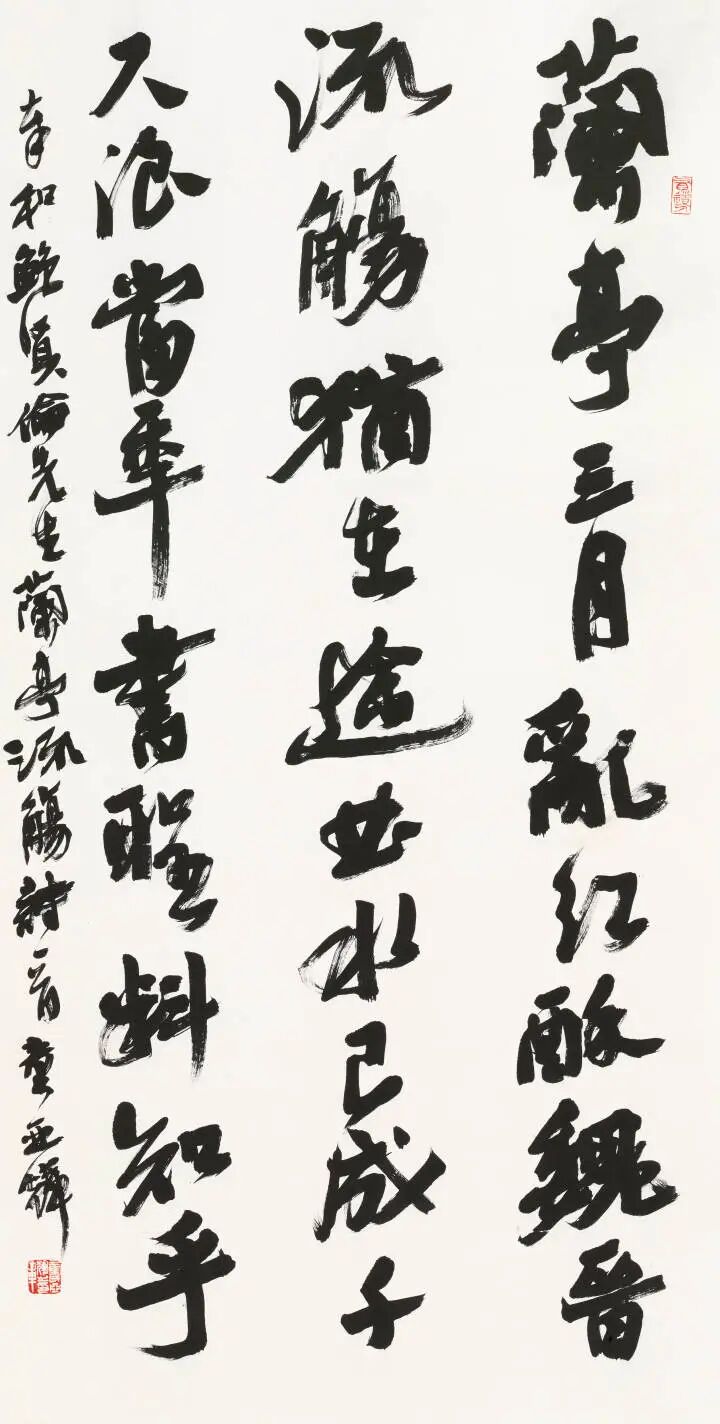 蘭亭三月亂紅酥魏晉
流觴猶在途曲水已成千
尺浪當年書聖料知乎
奉和鮑賢倫先生蘭亭流觴詩一首童亞輝